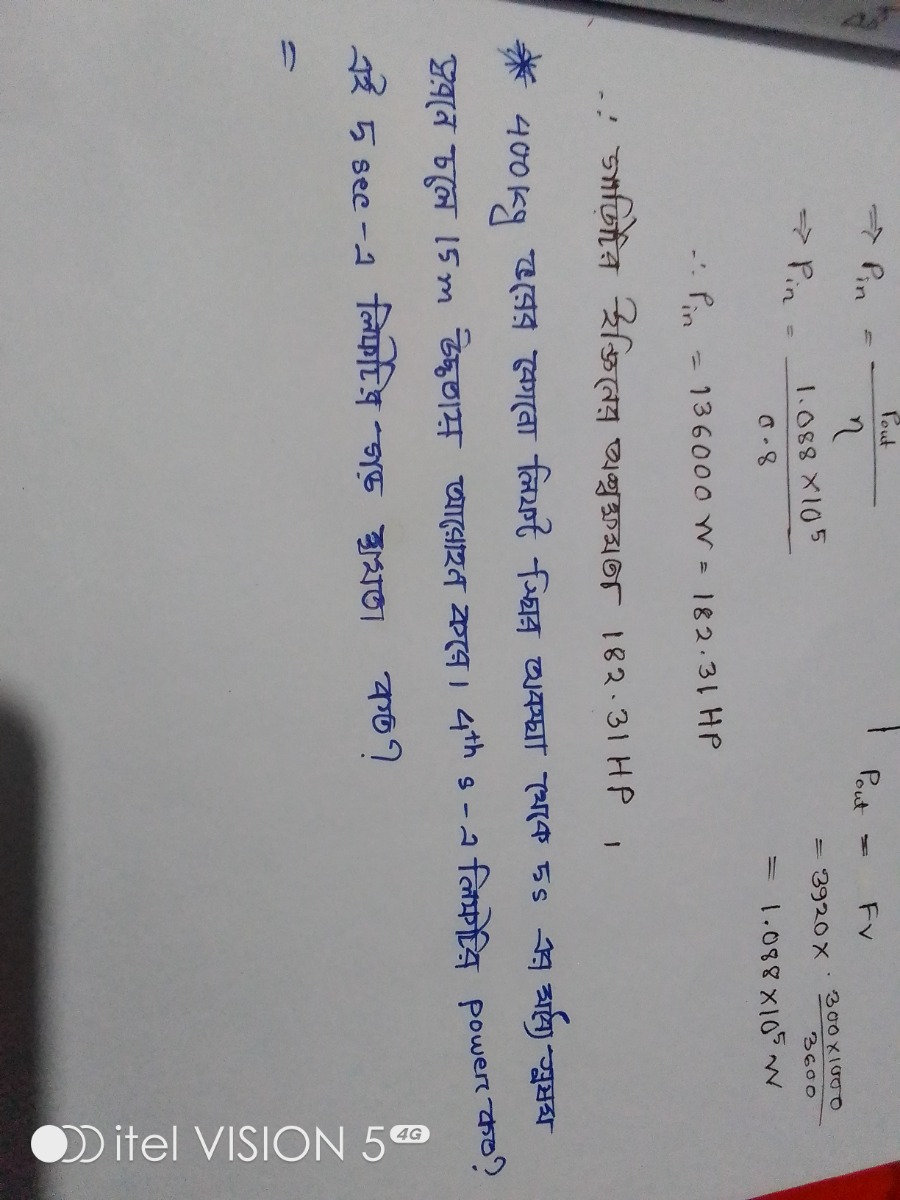 ⇒ Pin = Pout / η
⇒ Pin = 1.088 × 10⁵ / 0.8
∴ Pin = 136000 W = 182.31 HP
Pout = Fv
= 3920 × 300 × 1000 / 3600
= 1.088 × 10⁵ W
∴ গাড়িটির ইঞ্জিনের অশ্বক্ষমতা 182.31 HP ।
* 400 kg ভরের কোনো লিফট স্থির অবস্থা থেকে 5s এর মধ্যে সুষম
ত্বরণে চলে 15 m উচ্চতায় আরোহণ করলো। 4th s - এ লিফটটির power কত?
এই 5 sec - এ লিফটটির গড় ক্ষমতা কত?
=
itel VISION 5 4G